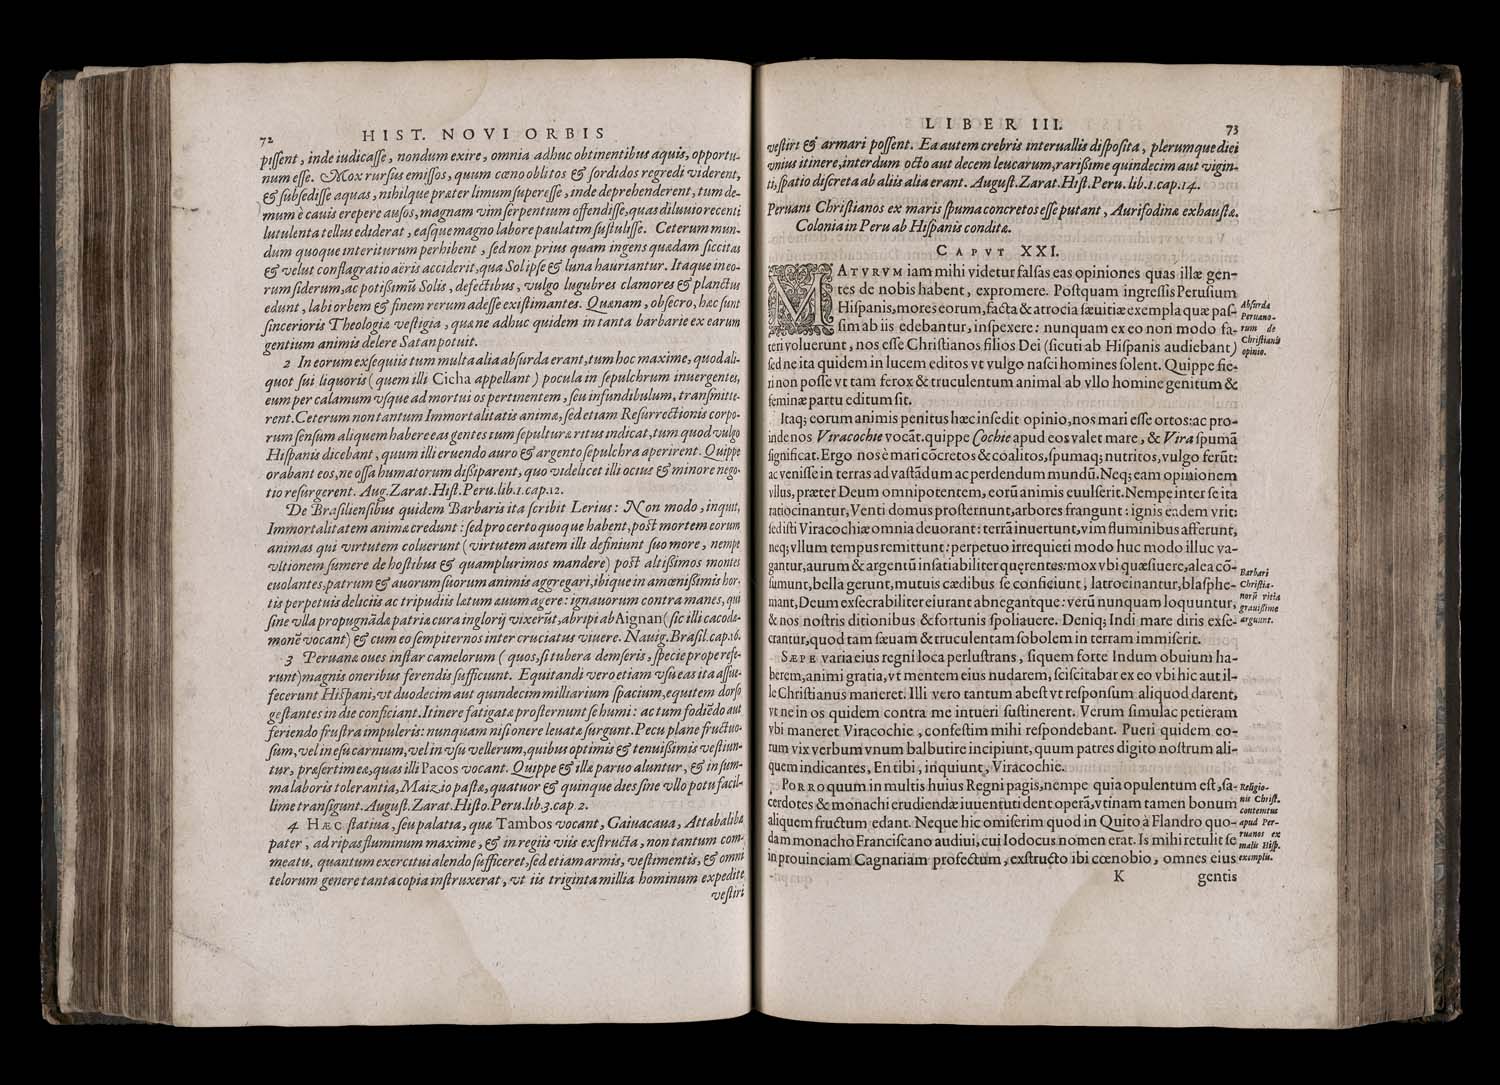 72 HIST. NOVI ORBIS
pissent, inde iudicasse, nondum exire, omnia adhuc obtinentibus aquis, opportu-
num esse. Mox rursus emissos, quum cœno oblitos & sordidos regredi viderent,
& subsedisse aquas, nihilque præter limum superesse, inde deprehenderent, tum de-
mum è cauis erepere ausos, magnam vim serpentium offendisse, quas diluuio recenti
lutulenta tellus ediderat, easque magno labore paulatim sustulisse. Ceterum mun-
dum quoque interiturum perhibent, sed non prius quam ingens quædam siccitas
& velut conflagratio aëris acciderit, qua Sol ipse & luna hauriantur. Itaque in eo-
rum siderum, ac potißimū Solis, defectibus, vulgo lugubres clamores & planctus
edunt, labi orbem & finem rerum adesse existimantes. Quænam, obsecro, hæc sunt
sincerioris Theologiæ vestigia, quæ ne adhuc quidem in tanta barbarie ex earum
gentium animis delere Satan potuit.
2 In eorum exsequiis tum multa alia absurda erant, tum hoc maxime, quod ali-
quot sui liquoris (quem illi Cicha appellant) pocula in sepulchrum inuergentes,
eum per calamum vsque ad mortui os pertinentem, seu infundibulum, transmitte-
rent. Ceterum non tantum Immortalitatis animæ, sed etiam Resurrectionis corpo-
rum sensum aliquem habere eas gentes tum sepulturæ ritus indicat, tum quod vulgo
Hispanis dicebant, quum illi eruendo auro & argento sepulchra aperirent. Quippe
orabant eos, ne ossa humatorum dißiparent, quo videlicet illi ocius & minore nego-
tio resurgerent. Aug. Zarat. Hist. Peru. lib. 1. cap. 12.
De Brasiliensibus quidem Barbaris ita scribit Lerius: Non modo, inquit,
Immortalitatem animæ credunt: sed pro certo quoque habent, post mortem eorum
animas qui virtutem coluerunt (virtutem autem illi definiunt suo more, nempe
vltionem sumere de hostibus & quamplurimos mandere) post altißimos montes
euolantes, patrum & auorum suorum animis aggregari, ibique in amœnißimis hor-
tis perpetuis deliciis ac tripudiis lætum æuum agere: ignauorum contra manes, qui
sine vlla propugnādæ patriæ cura inglorij vixerūt, abripi ab Aignan (sic illi cacodæ-
monē vocant) & cum eo sempiternos inter cruciatus viuere. Nauig. Brasil. cap. 16.
3 Peruanæ oues instar camelorum (quos, si tubera demseris, specie prope refe-
runt) magnis oneribus ferendis sufficiunt. Equitandi vero etiam vsu eas ita assue-
fecerunt Hispani, vt duodecim aut quindecim milliarium spacium, equitem dorso
gestantes in die conficiant. Itinere fatigatæ prosternunt se humi: ac tum fodiēdo aut
feriendo frustra impuleris: nunquam nisi onere leuatæ surgunt. Pecu plane fructuo-
sum, vel in esu carnium, vel in vsu vellerum, quibus optimis & tenuißimis vestiun-
tur, præsertim ea, quas illi Pacos vocant. Quippe & illæ paruo aluntur, & in sum-
ma laboris tolerantia, Maizio pastæ, quatuor & quinque dies sine vllo potu facil-
lime transigunt. August. Zarat. Histo. Peru. lib. 3. cap. 2.
4 HÆC statiua, seu palatia, quæ Tambos vocant, Gainacaua, Attabalibæ
pater, ad ripas fluminum maxime, & in regiis viis exstructa, non tantum com-
meatu, quantum exercitui alendo sufficeret, sed etiam armis, vestimentis, & omni
telorum genere tanta copia instruxerat, vt iis triginta millia hominum expedite
vestiri
LIBER III. 73
vestiri & armari possent. Ea autem crebris interuallis disposita, plerumque diei
vnius itinere, interdum octo aut decem leucarum, rarißime quindecim aut vigin-
ti, spatio discreta ab aliis alia erant. August. Zarat. Hist. Peru. lib. 1. cap. 14.
Peruani Christianos ex maris spuma concretos esse putant, Aurifodinæ exhaustæ.
Colonia in Peru ab Hispanis conditæ.
CAPVT XXI.
MATVRVM iam mihi videtur falsas eas opiniones quas illæ gen-
tes de nobis habent, expromere. Postquam ingressis Perusium
Hispanis, mores eorum, facta & atrocia sæuitiæ exempla quæ pas-
sim ab iis edebantur, inspexere: nunquam ex eo non modo fa-
teri voluerunt, nos esse Christianos filios Dei (sicuti ab Hispanis audiebant)
sed ne ita quidem in lucem editos vt vulgo nasci homines solent. Quippe fie-
ri non posse vt tam ferox & truculentum animal ab vllo homine genitum &
feminæ partu editum sit.
Absurda
Peruano-
rum de
Christianis
opinio.
Itaq; eorum animis penitus hæc insedit opinio, nos mari esse ortos: ac pro-
inde nos Viracochie vocāt. quippe Cochie apud eos valet mare, & Vira spumā
significat. Ergo nos è mari cōcretos & coalitos, spumaq; nutritos, vulgo ferūt:
ac venisse in terras ad vastādum ac perdendum mundū. Neq; eam opinionem
vllus, præter Deum omnipotentem, eorū animis euulserit. Nempe inter se ita
ratiocinantur, Venti domus prosternunt, arbores frangunt: ignis eadem vrit:
sed isti Viracochiæ omnia deuorant: terrā inuertunt, vim fluminibus afferunt,
neq; vllum tempus remittunt: perpetuo irrequieti modo huc modo illuc va-
gantur, aurum & argentū insatiabiliter quęrentes: mox vbi quæsiuere, alea cō-
sumunt, bella gerunt, mutuis cædibus se conficiunt, latrocinantur, blasphe-
mant, Deum exsecrabiliter eiurant abnegantque: verū nunquam loquuntur,
& nos nostris ditionibus & fortunis spoliauere. Deniq; Indi mare diris exse-
crantur, quod tam sæuam & truculentam sobolem in terram immiserit.
Barbari
Christia-
norū vitia
grauißime
arguunt.
SÆPE varia eius regni loca perlustrans, siquem forte Indum obuium ha-
berem, animi gratia, vt mentem eius nudarem, sciscitabar ex eo vbi hic aut il-
le Christianus maneret. Illi vero tantum abest vt responsum aliquod darent,
vt ne in os quidem contra me intueri sustinerent. Verum simulac petieram
vbi maneret Viracochie, confestim mihi respondebant. Pueri quidem eo-
rum vix verbum vnum balbutire incipiunt, quum patres digito nostrum ali-
quem indicantes, En tibi, inquiunt, Viracochie.
PORRO quum in multis huius Regni pagis, nempe quia opulentum est, sa-
cerdotes & monachi erudiendæ iuuentuti dent operā, vtinam tamen bonum
aliquem fructum edant. Neque hic omiserim quod in Quito à Flandro quo-
dam monacho Franciscano audiui, cui Iodocus nomen erat. Is mihi retulit se
in prouinciam Cagnariam profectum, exstructo ibi cœnobio, omnes eius
Religio-
nis Christ.
contemtus
apud Per-
ruanos ex
malis Hisp.
exemplis.
K gentis